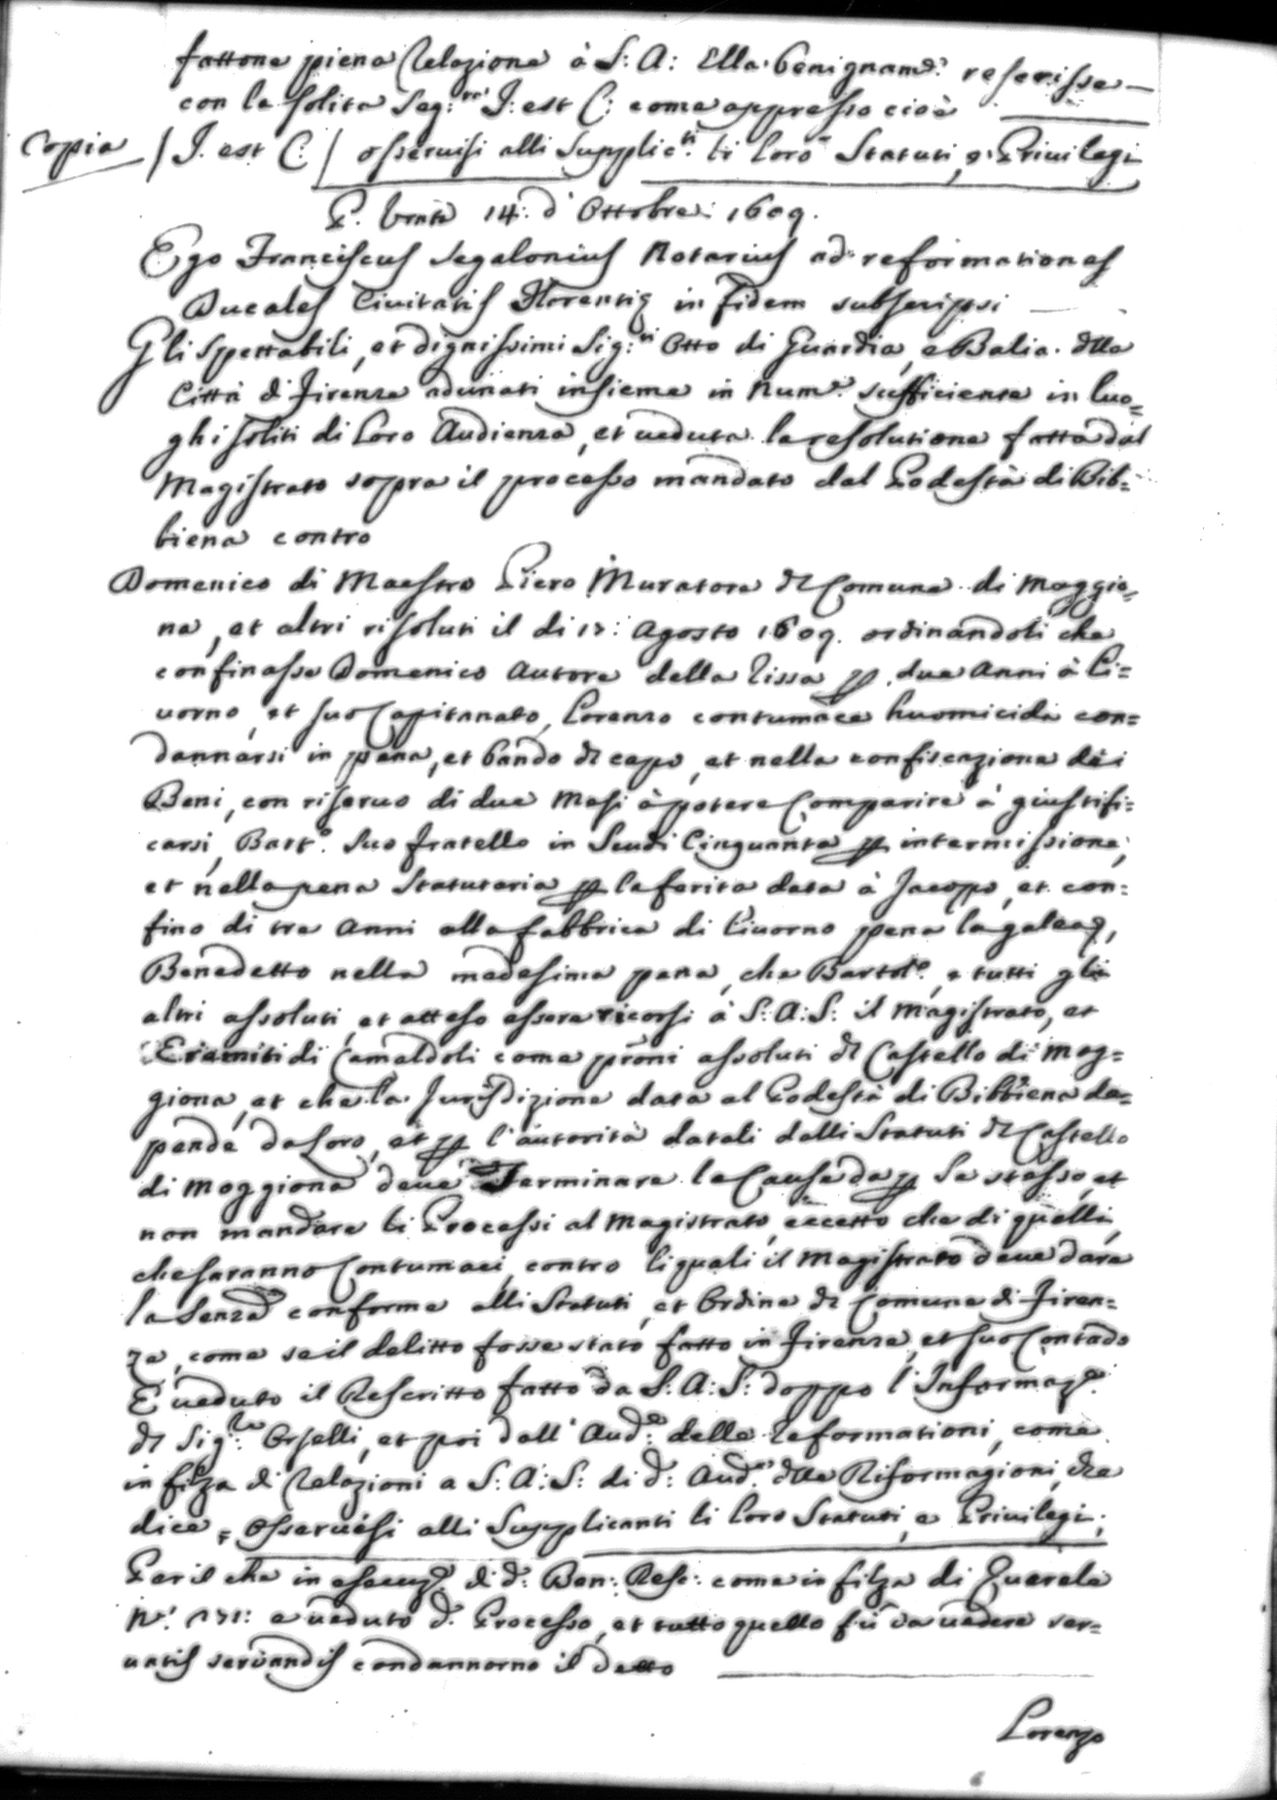 fattone piena Relazione à S: A: Ella benignam.te rescrisse
con la solita Seg:re J: est C: come appresso cioè
Copia / J. est C. / osservisi alli Supplic.ti li loro Statuti, e Privilegi
14: d'Ottobre: 1609.
Ego Franciscus Segalonius Notarius ad reformationes
Ducales Civitatis Florentię in fidem subscripsi
Gli Spettabili, et dignissimi Sig:ri Otto di Guardia, e Balia dlla
Città di Firenze adunati insieme in Num.o sufficiente in luo=
ghi soliti di loro Audienza, et veduta la resolutione fatta dal
Magistrato sopra il processo mandato dal Podestà di Bib=
biena contro
Domenico di Maestro Piero Muratore dl Comune di Moggio=
na, et altri risoluti il di 17: Agosto 1609. ordinandoli che
confinasse Domenico Autore della rissa p due Anni à Li=
vorno, et suo Capitanato, Lorenzo contumace huomicida con=
dannarsi in pena, et bando dl capo, et nella confiscazione dei
Beni, con riservo di due Mesi à potere Comparire à giustifi=
carsi, Bart.o suo fratello in Scudi Cinquanta p intermissione,
et nella pena Statutaria p la ferita data à Jacopo, et con=
fino di tre Anni alla fabbrica di Livorno pena la galea,
Benedetto nella medesima pena, che Bartol.o, e tutti gli
altri assoluti, et atteso essere ricorsi à S: A: S: il Magistrato, et
Eremiti di Camaldoli come pròni assoluti dl Castello di Mog=
giona, et che la Jurisdizione data al Podestà di Bibbiena de=
pende da loro, et p l'autorità datali dalli Statuti dl Castello
di Moggiona deve Terminare le Cause da p Se stesso, et
non mandare li Processi al Magistrato, eccetto che di quelli,
che saranno Contumaci, contro li quali il Magistrato deve dare
la Senza conforme alli Statuti, et Ordine dl Comune di Firen=
ze, come se il delitto fosse stato fatto in Firenze, et suo Contado
E veduto il Rescritto fatto da S: A: S: doppo l'Informaz.e
dl Sig:re Orselli, et poi dall'Aud:e delle Reformationi, come
in filza di Relazioni a S: A: S: di d: Aud.re dlle Riformagioni, che
dice = Osservisi alli Supplicanti li loro Statuti, e Privilegi.
Per il che in esecuz.e di d: Ben: Resc: come in filza di Querele
N.o 171: e veduto d. Processo, et tutto quello fù da vedere ser=
vatis servandis condannorno il detto
Lorenzo